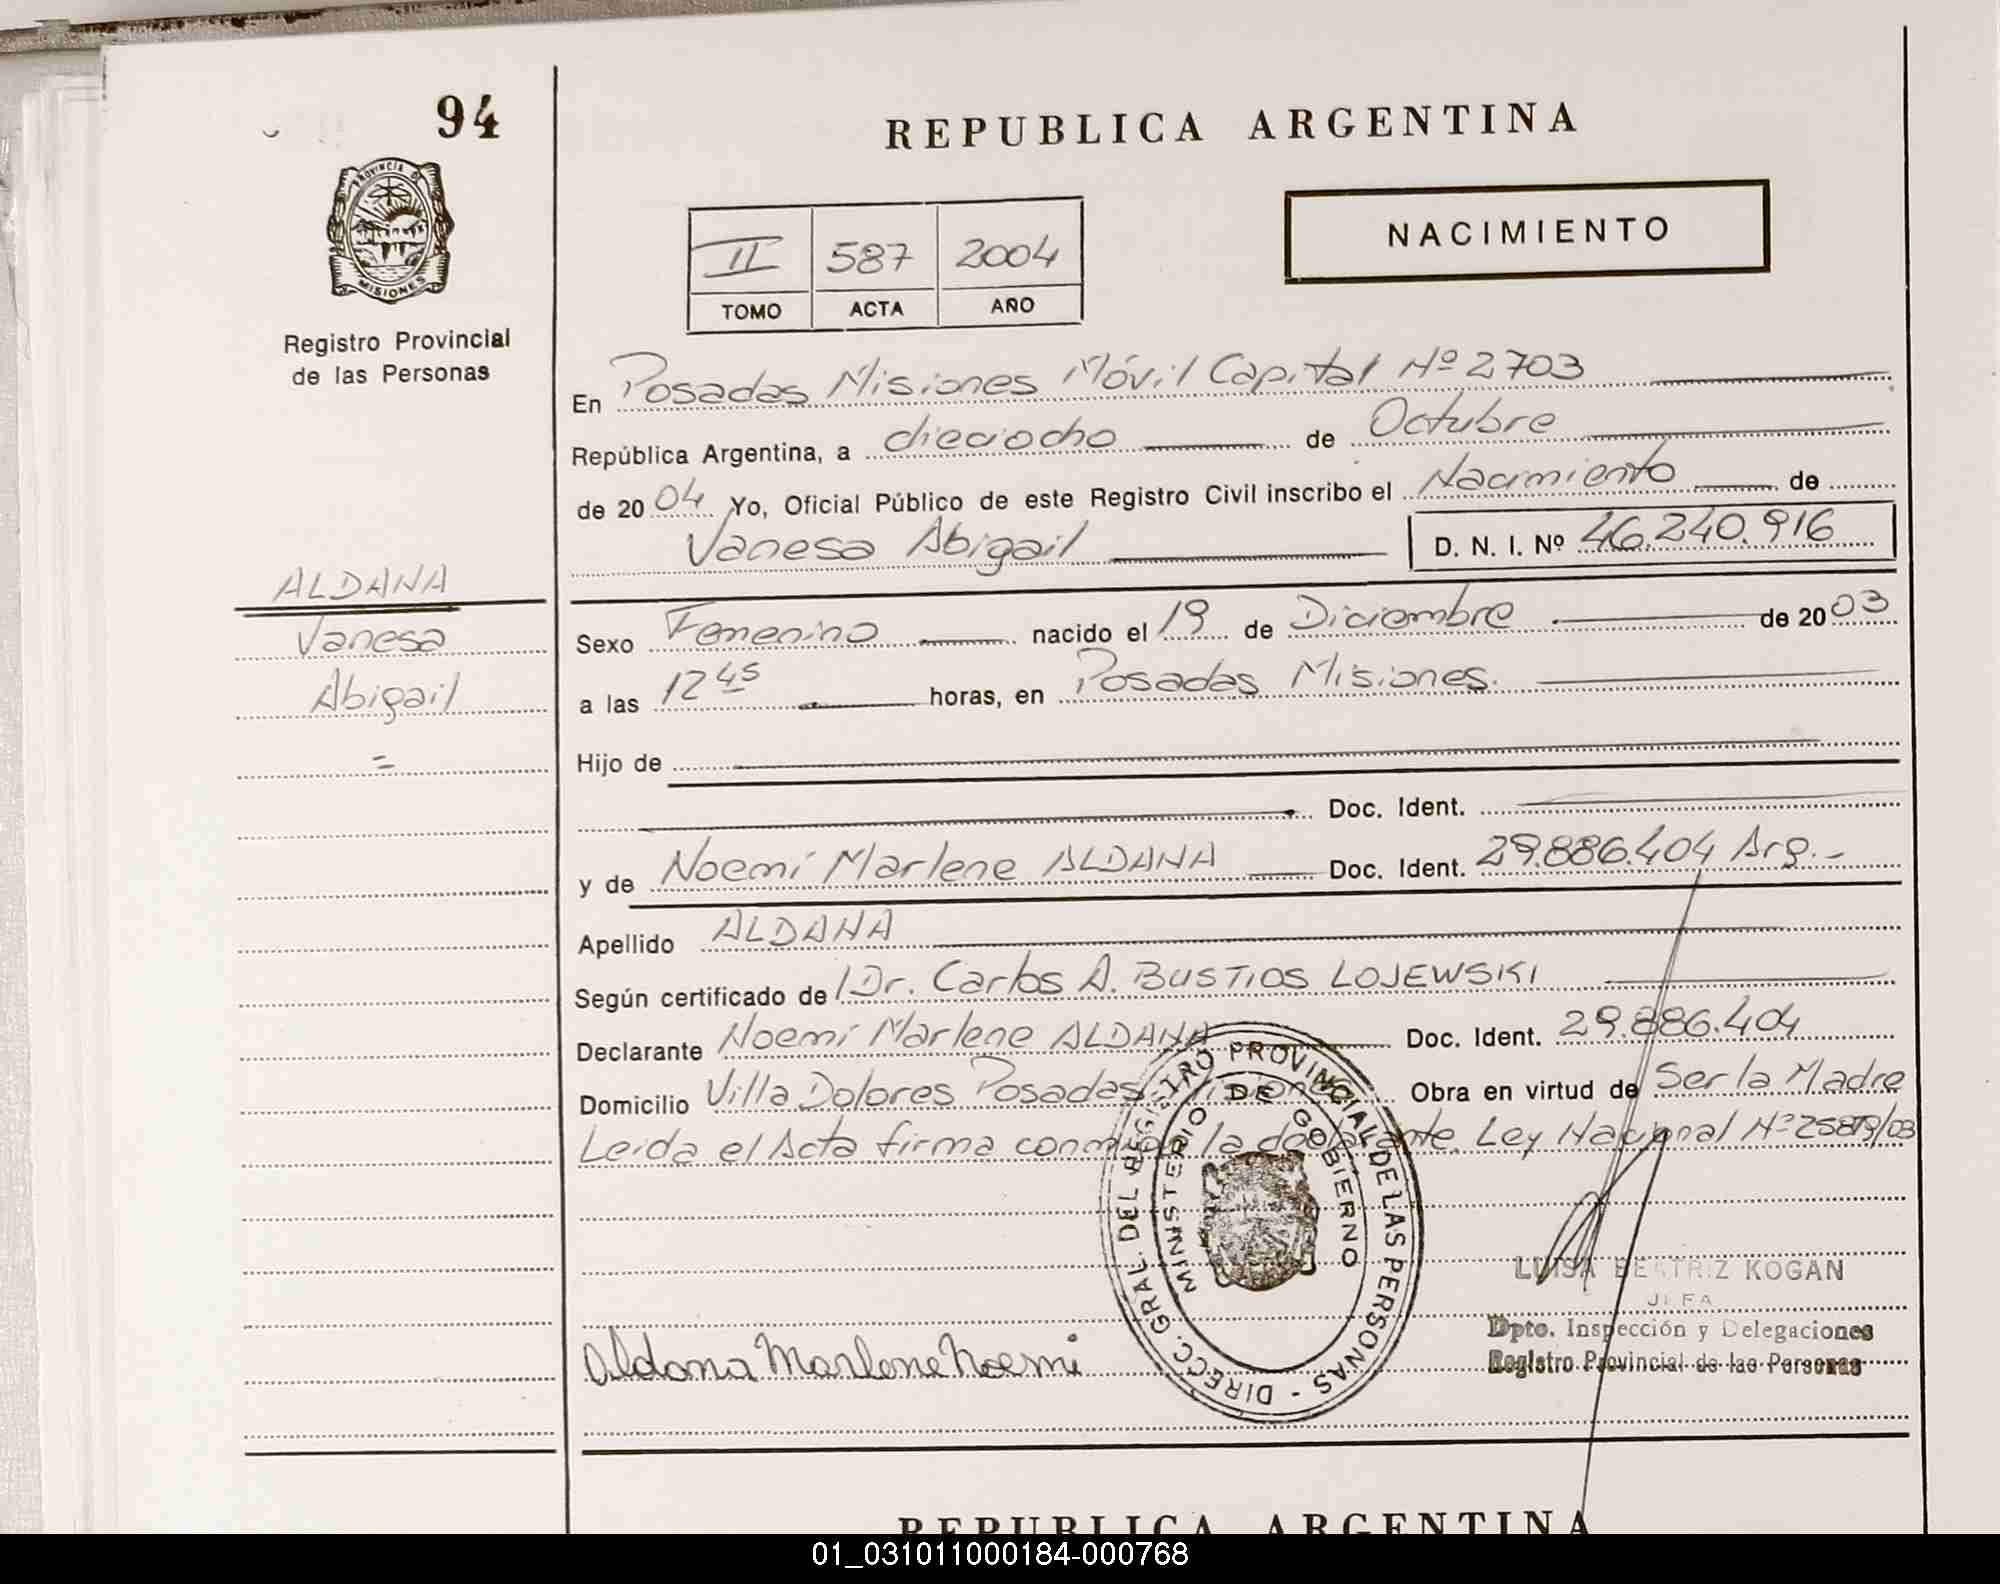 94
REPUBLICA ARGENTINA
PROVINCIA DE
MISIONES
Registro Provincial
de las Personas
NACIMIENTO
II 587 2004
TOMO ACTA AÑO
En Posadas Misiones Móvil Capital Nº 2703
República Argentina, a dieciocho de Octubre
de 2004 Yo, Oficial Público de este Registro Civil inscribo el Nacimiento de
Vanesa Abigail D. N. I. Nº 46.240.916
ALDANA
Vanesa
Abigail
=
Sexo Femenino nacido el 19 de Diciembre de 2003
a las 12 45 horas, en Posadas Misiones.
Hijo de
Doc. Ident.
y de Noemí Marlene ALDANA Doc. Ident. 29.886.404 Arg.-
Apellido ALDANA
Según certificado de Dr. Carlos A. BUSTIOS LOJEWSKI
Declarante Noemí Marlene ALDANA Doc. Ident. 29.886.404
Domicilio Villa Dolores Posadas Misiones Obra en virtud de Ser la Madre
Leida el Acta firma conmigo la declarante. Ley Nacional Nº
DIRECC. GRAL. DEL REGISTRO PROVINCIAL DE LAS PERSONAS -
MINISTERIO DE GOBIERNO
LUISA BEATRIZ KOGAN
JEFA
Dpto. Inspección y Delegaciones
Registro Provincial de las Personas
Aldana Marlene Noemi
REPUBLICA ARGENTINA
01_031011000184-000768